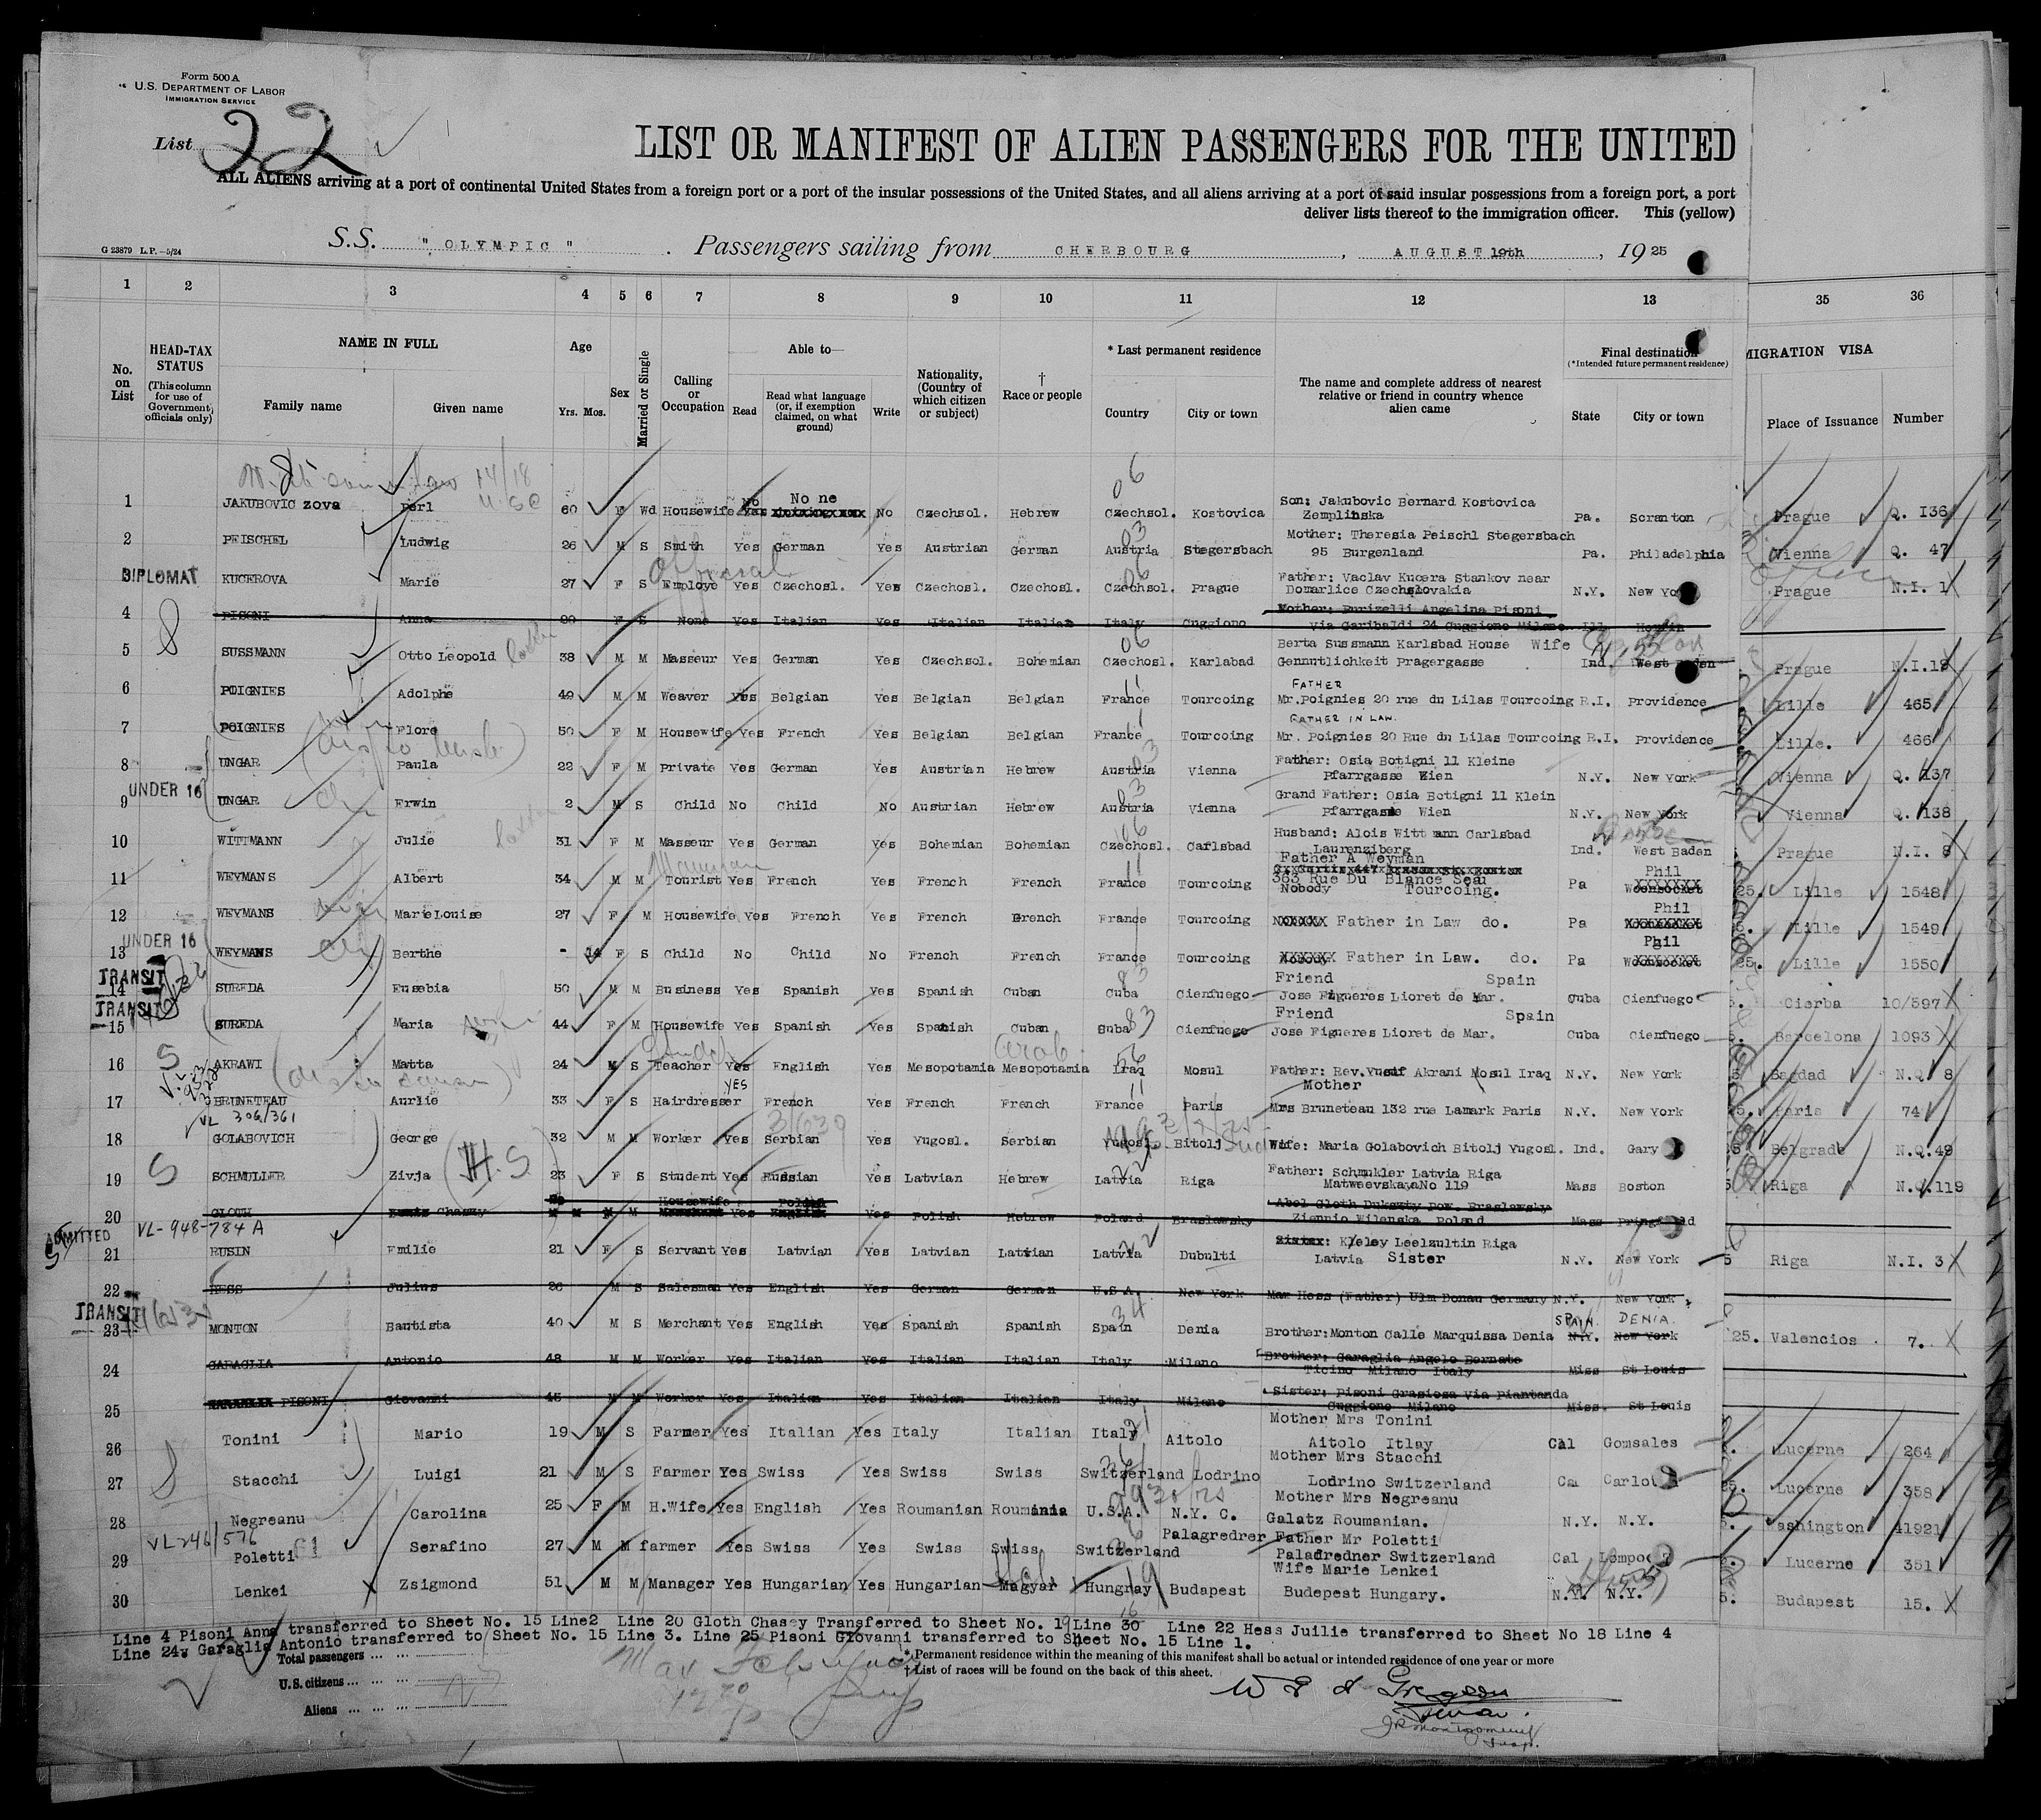 Form 500 A
U.S. DEPARTMENT OF LABOR
IMMIGRATION SERVICE
List 22
LIST OR MANIFEST OF ALIEN PASSENGERS FOR THE UNITED
ALL ALIENS arriving at a port of continental United States from a foreign port or a port of the insular possessions of the United States, and all aliens arriving at a port of said insular possessions from a foreign port, a port
deliver lists thereof to the immigration officer. This (yellow)
G 23879 L.P.—5/24
S.S. "OLYMPIC". Passengers sailing from CHERBOURG, AUGUST 19th, 1925
1 2 3 4 5 6 7 8 9 10 11 12 13 35 36
No. on List
HEAD-TAX STATUS
(This column for use of Government officials only)
NAME IN FULL
Family name
Given name
Age
Yrs. Mos.
Sex
Married or Single
Calling or Occupation
Able to—
Read
Read what language (or, if exemption claimed, on what ground)
Write
Nationality, (Country of which citizen or subject)
† Race or people
* Last permanent residence
Country
City or town
The name and complete address of nearest relative or friend in country whence alien came
Final destination
(*Intended future permanent residence)
State
City or town
MIGRATION VISA
Place of Issuance
Number
1 JAKUBOVIC zova Perl 60 F Wd Housewife No No ne No Czechsol. Hebrew Czechsol. Kostovica Son: Jakubovic Bernard Kostovica Zemplinska Pa. Scranton Prague Q. 136
2 PEISCHEL Ludwig 26 M S Smith Yes German Yes Austrian German Austria Stegersbach Mother: Theresia Peischl Stegersbach 95 Burgenland Pa. Philadelphia Vienna Q. 47
DIPLOMAT KUCEROVA Marie 27 F S Employe Official Yes Czechosl. Yes Czechosl. Czechosl. Czechsol. Prague Father: Vaclav Kucera Stankov near Domarlice Czechslovakia N.Y. New Yo Prague N.I. 1
4 PISONI Anna 20 F S None Yes Italian Yes Italian Italian Italy Cuggiono Mother: Purizelli Angelina Pisoni Via Garibaldi 24 Cuggiono Milano Ill
5 SUSSMANN Otto Leopold 38 M M Masseur Yes German Yes Czechsol. Bohemian Czechosl. Karlabad Berta Sussmann Karlsbad House Wife Gennutlichkeit Pragergasse Ind. West Baden Prague N.I.18
6 POIGNIES Adolphe 49 M M Weaver Yes Belgian Yes Belgian Belgian France Tourcoing FATHER Mr.Poignies 20 rue du Lilas Tourcoing R.I. Providence Lille 465
7 POIGNIES Flore 50 F M Housewife Yes French Yes Belgian Belgian France Tourcoing FATHER IN LAW. Mr. Poignies 20 Rue du Lilas Tourcoing R.I. Providence Lille. 466
8 UNGAR Paula 22 F M Private Yes German Yes Austrian Hebrew Austria Vienna Father: Osia Botigni 11 Kleine Pfarrgasse Wien N.Y. New York Vienna Q. 137
9 UNDER 16 UNGAR Erwin 2 M S Child No Child No Austrian Hebrew Austria Vienna Grand Father: Osia Botigni 11 Klein Pfarrgasse Wien N.Y. New York Vienna Q. 138
10 WITTMANN Julie 31 F M Masseur Yes German Yes Bohemian Bohemian Czechosl. Carlsbad Husband: Alois Witt ann Carlsbad Laurenziberg Ind. West Baden Prague N.I. 8
11 WEYMANS Albert 34 M M Tourist Yes French Yes French French France Tourcoing Father A Weyman 363 Rue Du Blance Seau Nobody Tourcoing. Pa Phil Woonsocket 25. Lille 1548
12 WEYMANS Marie Louise 27 F M Housewife Yes French Yes French French France Tourcoing Father in Law do. Pa Phil Lille 1549
13 UNDER 16 WEYMANS Berthe - 14 F S Child No Child No French French France Tourcoing Father in Law. do. Pa Phil Woonsocket 25. Lille 1550
14 TRANSIT SUREDA Eusebia 50 M M Business Yes Spanish Yes Spanish Cuban Cuba Cienfuego Friend Spain Jose Figueres Lioret de Mar. Cuba Cienfuego Cierba 10/597
15 TRANSIT SUREDA Maria 44 F M Housewife Yes Spanish Yes Spanish Cuban Cuba Cienfuego Friend Spain Jose Figueres Lioret de Mar. Cuba Cienfuego Barcelona 1093
16 AKRAWI Matta 24 M S Teacher Student Yes English Yes Mesopotamia Mesopotamia Arab Iraq Mosul Father: Rev.Yusuf Akrani Mosul Iraq N.Y. New York Bagdad N.Q. 8
17 BRUNETEAU Aurlie 33 F S Hairdresser YES French Yes French French France Paris Mother Mrs Bruneteau 132 rue Lamark Paris N.Y. New York Paris 74
VL 306/361
18 GOLABOVICH George 32 M M Worker Yes Serbian Yes Yugosl. Serbian Yugosl. Bitolj Wife: Maria Golabovich Bitolj Yugosl. Ind. Gary Belgrade N.Q.49
19 SCHMULLER Zivja (H.S) 23 F S Student Yes Russian Yes Latvian Hebrew Latvia Riga Father: Schmukler Latvia Riga Matweevskaya No 119 Mass Boston Riga N.Q.119
20 GLOTH Chasey M Housewife Yes Yes Polish Hebrew Poland Braslawsky Abel Gloth Dukszty pow. Braslawsky Ziennie Wilenska Poland Mass
ADMITTED VL-948-784 A
21 RUSIN Emilie 21 F S Servant Yes Latvian Yes Latvian Latvian Latvia Dubulti Sister: Leelzultin Riga Latvia Sister N.Y. New York Riga N.I. 3
22 HESS Julius 26 M S Salesman Yes English Yes German German U.S.A. New York Max Hess (Father) Ulm Donau Germany N.Y. New York
23 TRANSIT MONTON Bautista 40 M S Merchant Yes English Yes Spanish Spanish Spain Denia Brother:Monton Calle Marquissa Denia SPAIN DENIA N.Y. New York 25. Valencios 7.
24 GARAGLIA Antonio 48 M M Worker Yes Italian Yes Italian Italian Italy Milano Brother: Garaglia Angelo Bernate Ticino Milano Italy Miss St Louis
25 GARAGLIA PISONI Giovanni 45 M M Worker Yes Italian Yes Italian Italian Italy Milano Sister: Pisoni Grasiosa Via Piantanda Cuggiono Milano Miss. St Louis
26 Tonini Mario 19 M S Farmer Yes Italian Yes Italy Italian Italy Aitolo Mother Mrs Tonini Aitolo Itlay Cal Gomsales Lucerne 264
27 Stacchi Luigi 21 M S Farmer Yes Swiss Yes Swiss Swiss Switzerland Lodrino Mother Mrs Stacchi Lodrino Switzerland Ca Carlot Lucerne 358
28 Negreanu Carolina 25 F M H.Wife Yes English Yes Roumanian Roumania U.S.A. N.Y. C. Mother Mrs Negreanu Galatz Roumanian. N.Y. N.Y. Washington 41921
VL246/576
29 Poletti Serafino 27 M M farmer Yes Swiss Yes Swiss Swiss Switzerland Palagredrer Father Mr Poletti Paladredner Switzerland Cal Lompoc Lucerne 351
30 Lenkei Zsigmond 51 M M Manager Yes Hungarian Yes Hungarian Magyar Hungray Budapest Wife Marie Lenkei Budepest Hungary. N.Y. N.Y. Budapest 15.
Line 4 Pisoni Anna transferred to Sheet No. 15 Line2 Line 20 Gloth Chasey Transferred to Sheet No. 19 Line 30 Line 22 Hess Juilie transferred to Sheet No 18 Line 4
Line 24. Garaglia Antonio transferred to Sheet No. 15 Line 3. Line 25 Pisoni Giovanni transferred to Sheet No. 15 Line 1.
Total passengers
U.S. citizens
Aliens
* Permanent residence within the meaning of this manifest shall be actual or intended residence of one year or more
† List of races will be found on the back of this sheet.